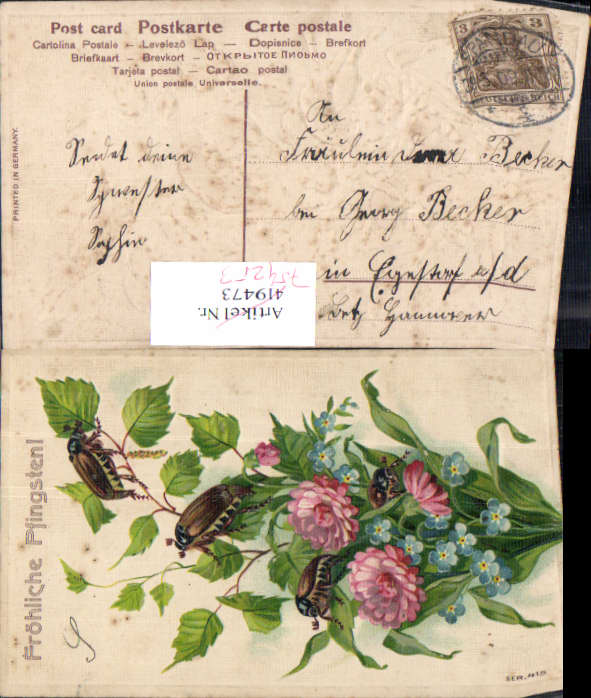 Post card Postkarte Carte postale
Cartolina Postale – Levelező Lap – Dopisnice – Brefkort
Briefkaart – Brevkort – ОТКРЫТОЕ ПИСЬМО
Tarjeta postal – Cartao postal
Union postale Universelle.
3 3
DEUTSCHES REICH
PRINTED IN GERMANY.
Sendet deine
Schwester
Sophie
An
Fräulein Becker
bei Georg Becker
in Egestorf a/d
Bez Hannover
Artikel Nr.
419473
Fröhliche Pfingsten!